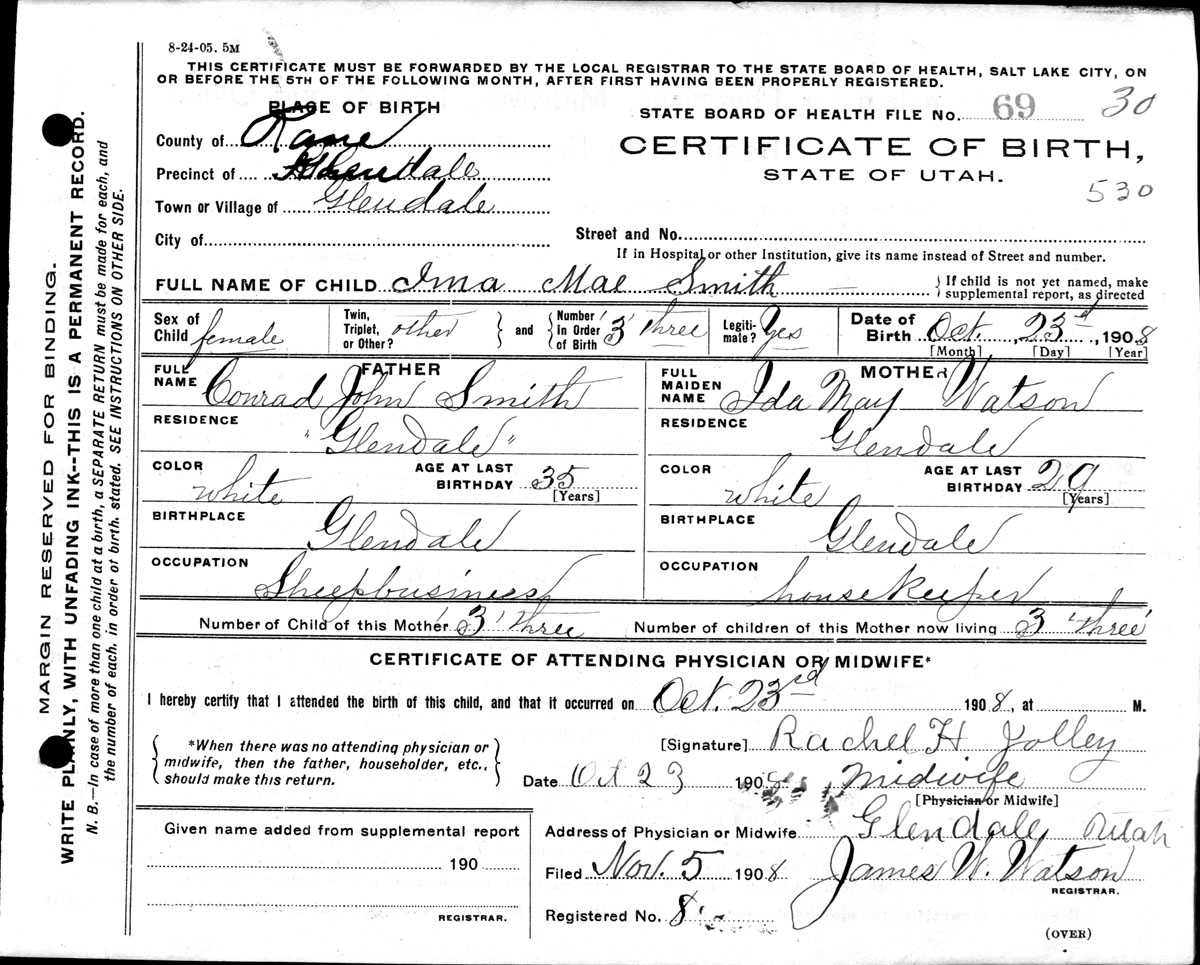 8-24-05. 5M
THIS CERTIFICATE MUST BE FORWARDED BY THE LOCAL REGISTRAR TO THE STATE BOARD OF HEALTH, SALT LAKE CITY, ON
OR BEFORE THE 5TH OF THE FOLLOWING MONTH, AFTER FIRST HAVING BEEN PROPERLY REGISTERED.
PLACE OF BIRTH
STATE BOARD OF HEALTH FILE No. 69 30
County of Kane
CERTIFICATE OF BIRTH,
Precinct of Glendale
STATE OF UTAH.
530
Town or Village of Glendale
City of
Street and No.
If in Hospital or other Institution, give its name instead of Street and number.
FULL NAME OF CHILD Ima Mae Smith
{ If child is not yet named, make
supplemental report, as directed
Sex of Child female
Twin, Triplet, or Other? other } and { Number In Order of Birth 3 'three
Legiti-mate? Yes
Date of Birth Oct. 23rd, 1908
[Month] [Day] [Year]
FATHER
FULL NAME Conrad John Smith
RESIDENCE "Glendale"
COLOR white
AGE AT LAST BIRTHDAY 35
[Years]
BIRTHPLACE Glendale
OCCUPATION Sheepbusiness
MOTHER
FULL MAIDEN NAME Ida May Watson
RESIDENCE Glendale
COLOR white
AGE AT LAST BIRTHDAY 29
[Years]
BIRTHPLACE Glendale
OCCUPATION housekeeper
Number of Child of this Mother 3 'three
Number of children of this Mother now living 3 'three'
CERTIFICATE OF ATTENDING PHYSICIAN OR MIDWIFE*
I hereby certify that I attended the birth of this child, and that it occurred on Oct. 23rd 1908, at M.
{ *When there was no attending physician or
midwife, then the father, householder, etc.,
should make this return. }
[Signature] Rachel H Jolley
Date Oct 23 1908 Midwife
[Physician or Midwife]
Given name added from supplemental report
190
REGISTRAR.
Address of Physician or Midwife Glendale Utah
Filed Nov. 5 1908 James W. Watson
REGISTRAR.
Registered No. 8
(OVER)
MARGIN RESERVED FOR BINDING.
WRITE PLAINLY, WITH UNFADING INK--THIS IS A PERMANENT RECORD.
N. B.—In case of more than one child at a birth, a SEPARATE RETURN must be made for each, and
the number of each, in order of birth, stated. SEE INSTRUCTIONS ON OTHER SIDE.